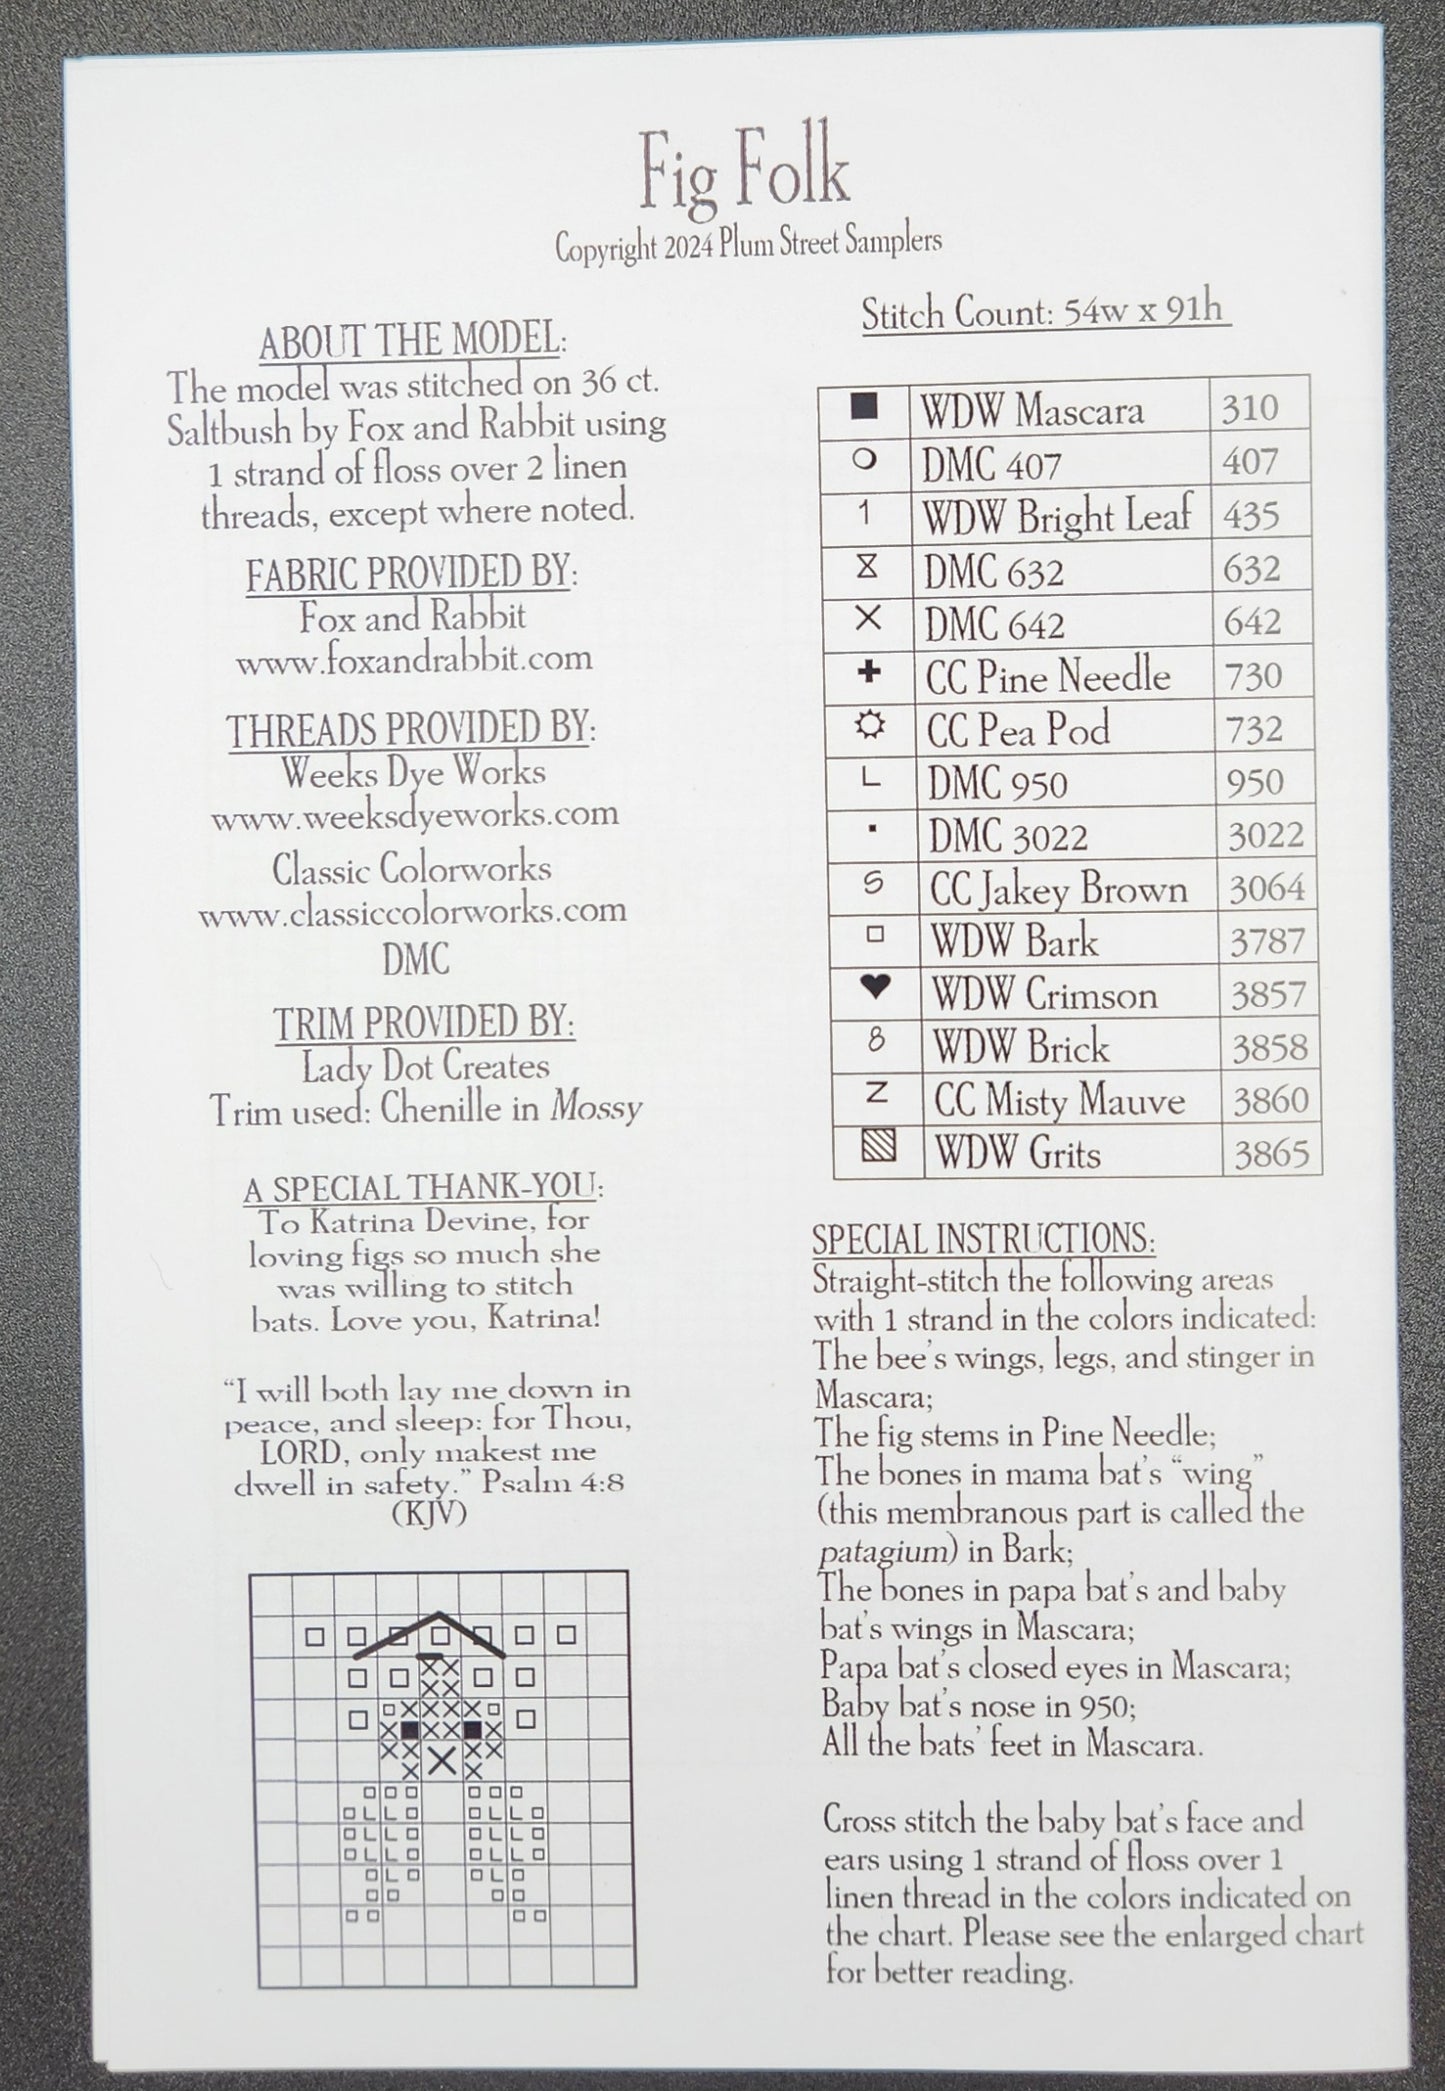 Fig Folk
Copyright 2024 Plum Street Samplers
ABOUT THE MODEL:
The model was stitched on 36 ct.
Saltbush by Fox and Rabbit using
1 strand of floss over 2 linen
threads, except where noted.
FABRIC PROVIDED BY:
Fox and Rabbit
www.foxandrabbit.com
THREADS PROVIDED BY:
Weeks Dye Works
www.weeksdyeworks.com
Classic Colorworks
www.classiccolorworks.com
DMC
TRIM PROVIDED BY:
Lady Dot Creates
Trim used: Chenille in Mossy
A SPECIAL THANK-YOU:
To Katrina Devine, for
loving figs so much she
was willing to stitch
bats. Love you, Katrina!
“I will both lay me down in
peace, and sleep: for Thou,
LORD, only makest me
dwell in safety.” Psalm 4:8
(KJV)
Stitch Count: 54w x 91h
WDW Mascara 310
DMC 407 407
1 WDW Bright Leaf 435
DMC 632 632
DMC 642 642
CC Pine Needle 730
CC Pea Pod 732
L DMC 950 950
DMC 3022 3022
S CC Jakey Brown 3064
WDW Bark 3787
WDW Crimson 3857
8 WDW Brick 3858
Z CC Misty Mauve 3860
WDW Grits 3865
SPECIAL INSTRUCTIONS:
Straight-stitch the following areas
with 1 strand in the colors indicated:
The bee's wings, legs, and stinger in
Mascara;
The fig stems in Pine Needle;
The bones in mama bat's “wing”
(this membranous part is called the
patagium) in Bark;
The bones in papa bat's and baby
bat's wings in Mascara;
Papa bat's closed eyes in Mascara;
Baby bat's nose in 950;
All the bats' feet in Mascara.
Cross stitch the baby bat's face and
ears using 1 strand of floss over 1
linen thread in the colors indicated on
the chart. Please see the enlarged chart
for better reading.